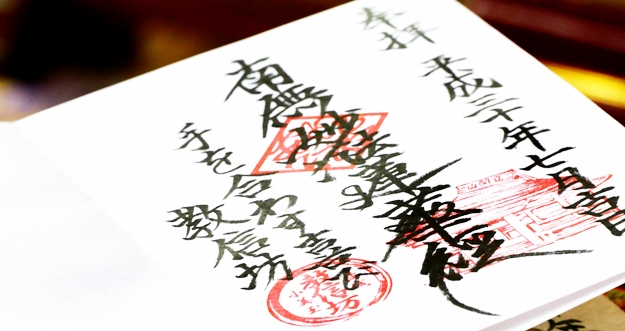 奉拝
平成三十年七月吉日
南無妙法蓮華經
手を合わす喜び
教信坊